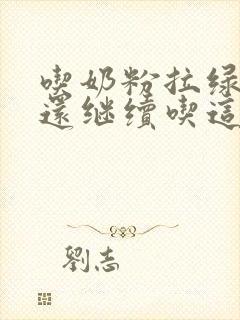 喫奶粉拉绿
還继續喫這
劉志